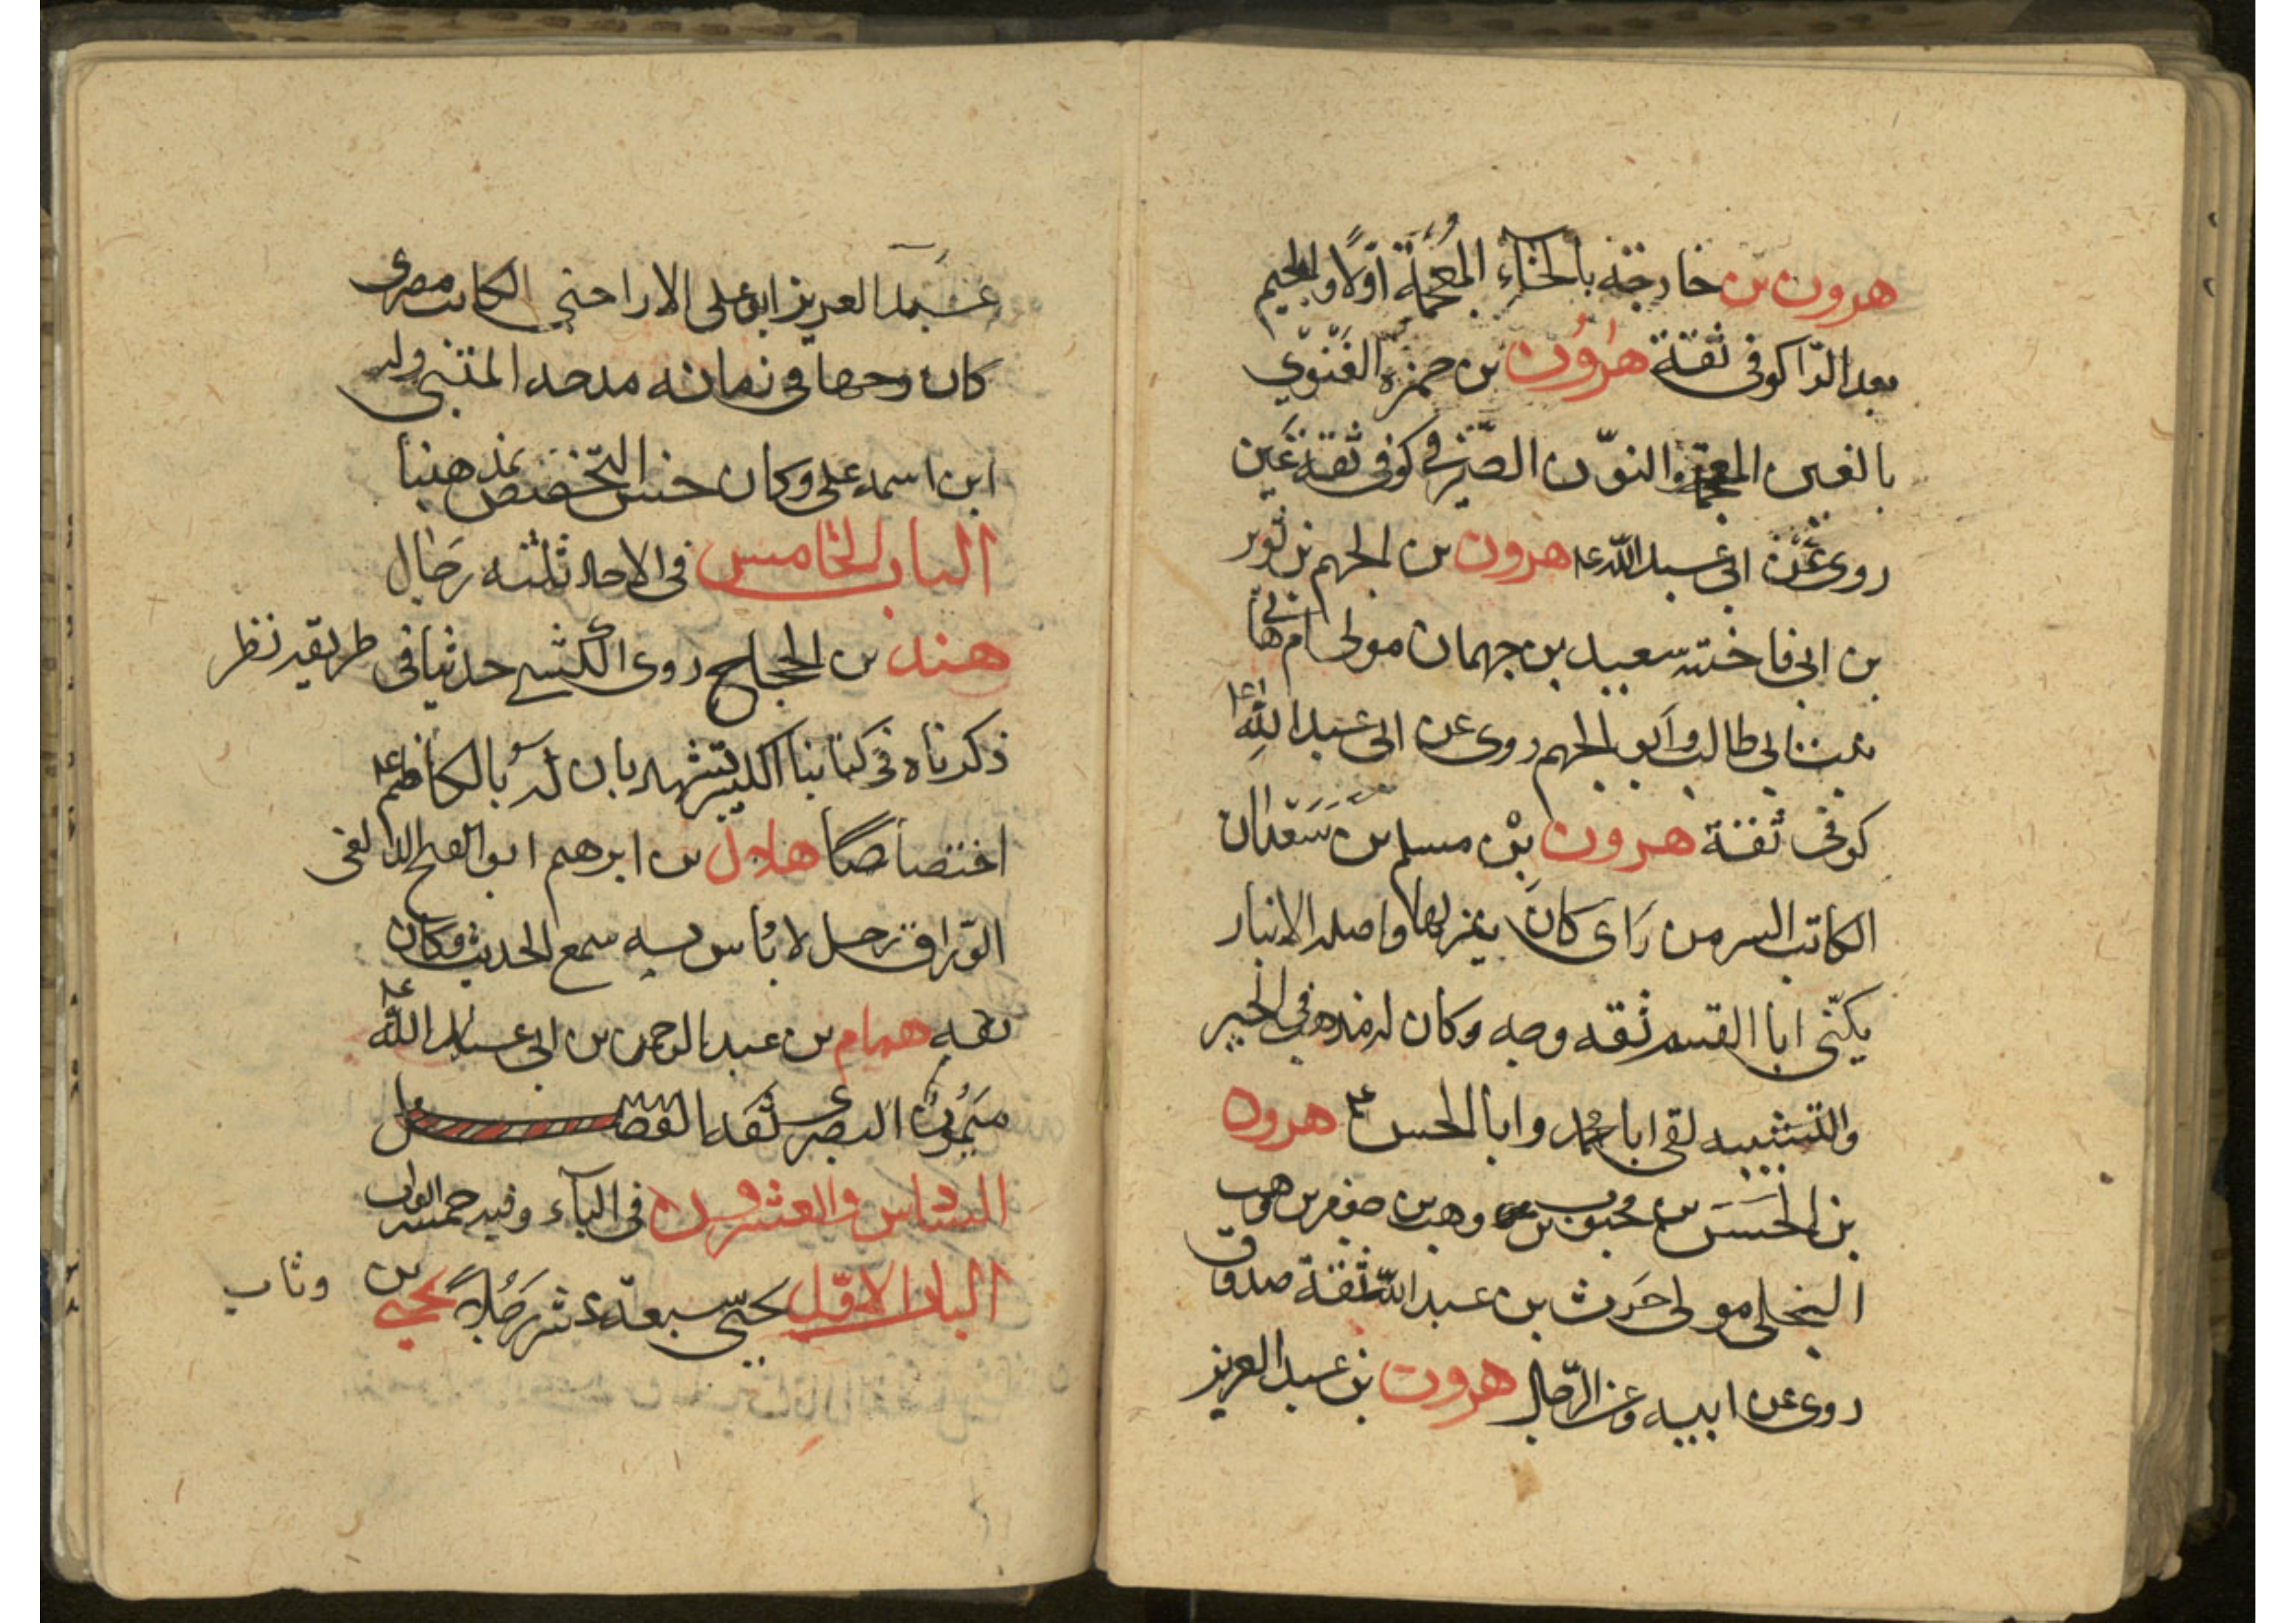 هرون بن خارجة بالخآء المعجمة اولا والجيم
بعد الرا كوفى ثقة هرون بن حمزة الغنوي
بالغين المعجمة والنون الصيرفي كوفى ثقة عين
روى عن ابى عبد الله ع هرون بن الجهم بن ثوير
بن ابى فاختة سعيد بن جهمان مولى ام هانى
بنت ابى طالب وابو الجهم روى عن ابى عبد الله ع
كوفى ثقة هرون بن مسلم بن سعدان
الكاتب السر من راى كان ينزلها واصله الانبار
يكنى ابا القسم ثقه وجه وكان له مذهب فى الجبر
والتشبيه لقى ابا محمد وابا الحسن ع هرون
بن الحسن بن محبوب بن وهب بن جعفر بن وهب
البجلى مولى حرث بن عبد الله ثقة صدوق
روى عن ابيه وعن الرجال هرون بن عبد العزيز
عبد العزيز ابو على الاراجنى الكاتب مصرى
كان وجها فى زمانه مدحه المتنبى وله
ابن اسمه على وكان حسن التخصص بمذهبنا
الباب الخامس فى الاحاد ثلثه رجال
هند بن الحجاج روى الكشى حديثا فى طريقه نظر
ذكرناه فى كتابنا الكبير تشهد بان له بالكاظم ع
اختصاصا هلال بن ابرهيم ابو الفتح الدلفى
الوراق رجل لا باس به سمع الحديث وكان
ثقه همام بن عبد الرحمن بن ابى عبد الله ع
ميمون البصرى ثقه الفصل
السادس والعشرون فى اليآء وفيه خمسه ابواب
الباب الاول يحيى سبعة عشر رجلا يحيى بن
وثاب